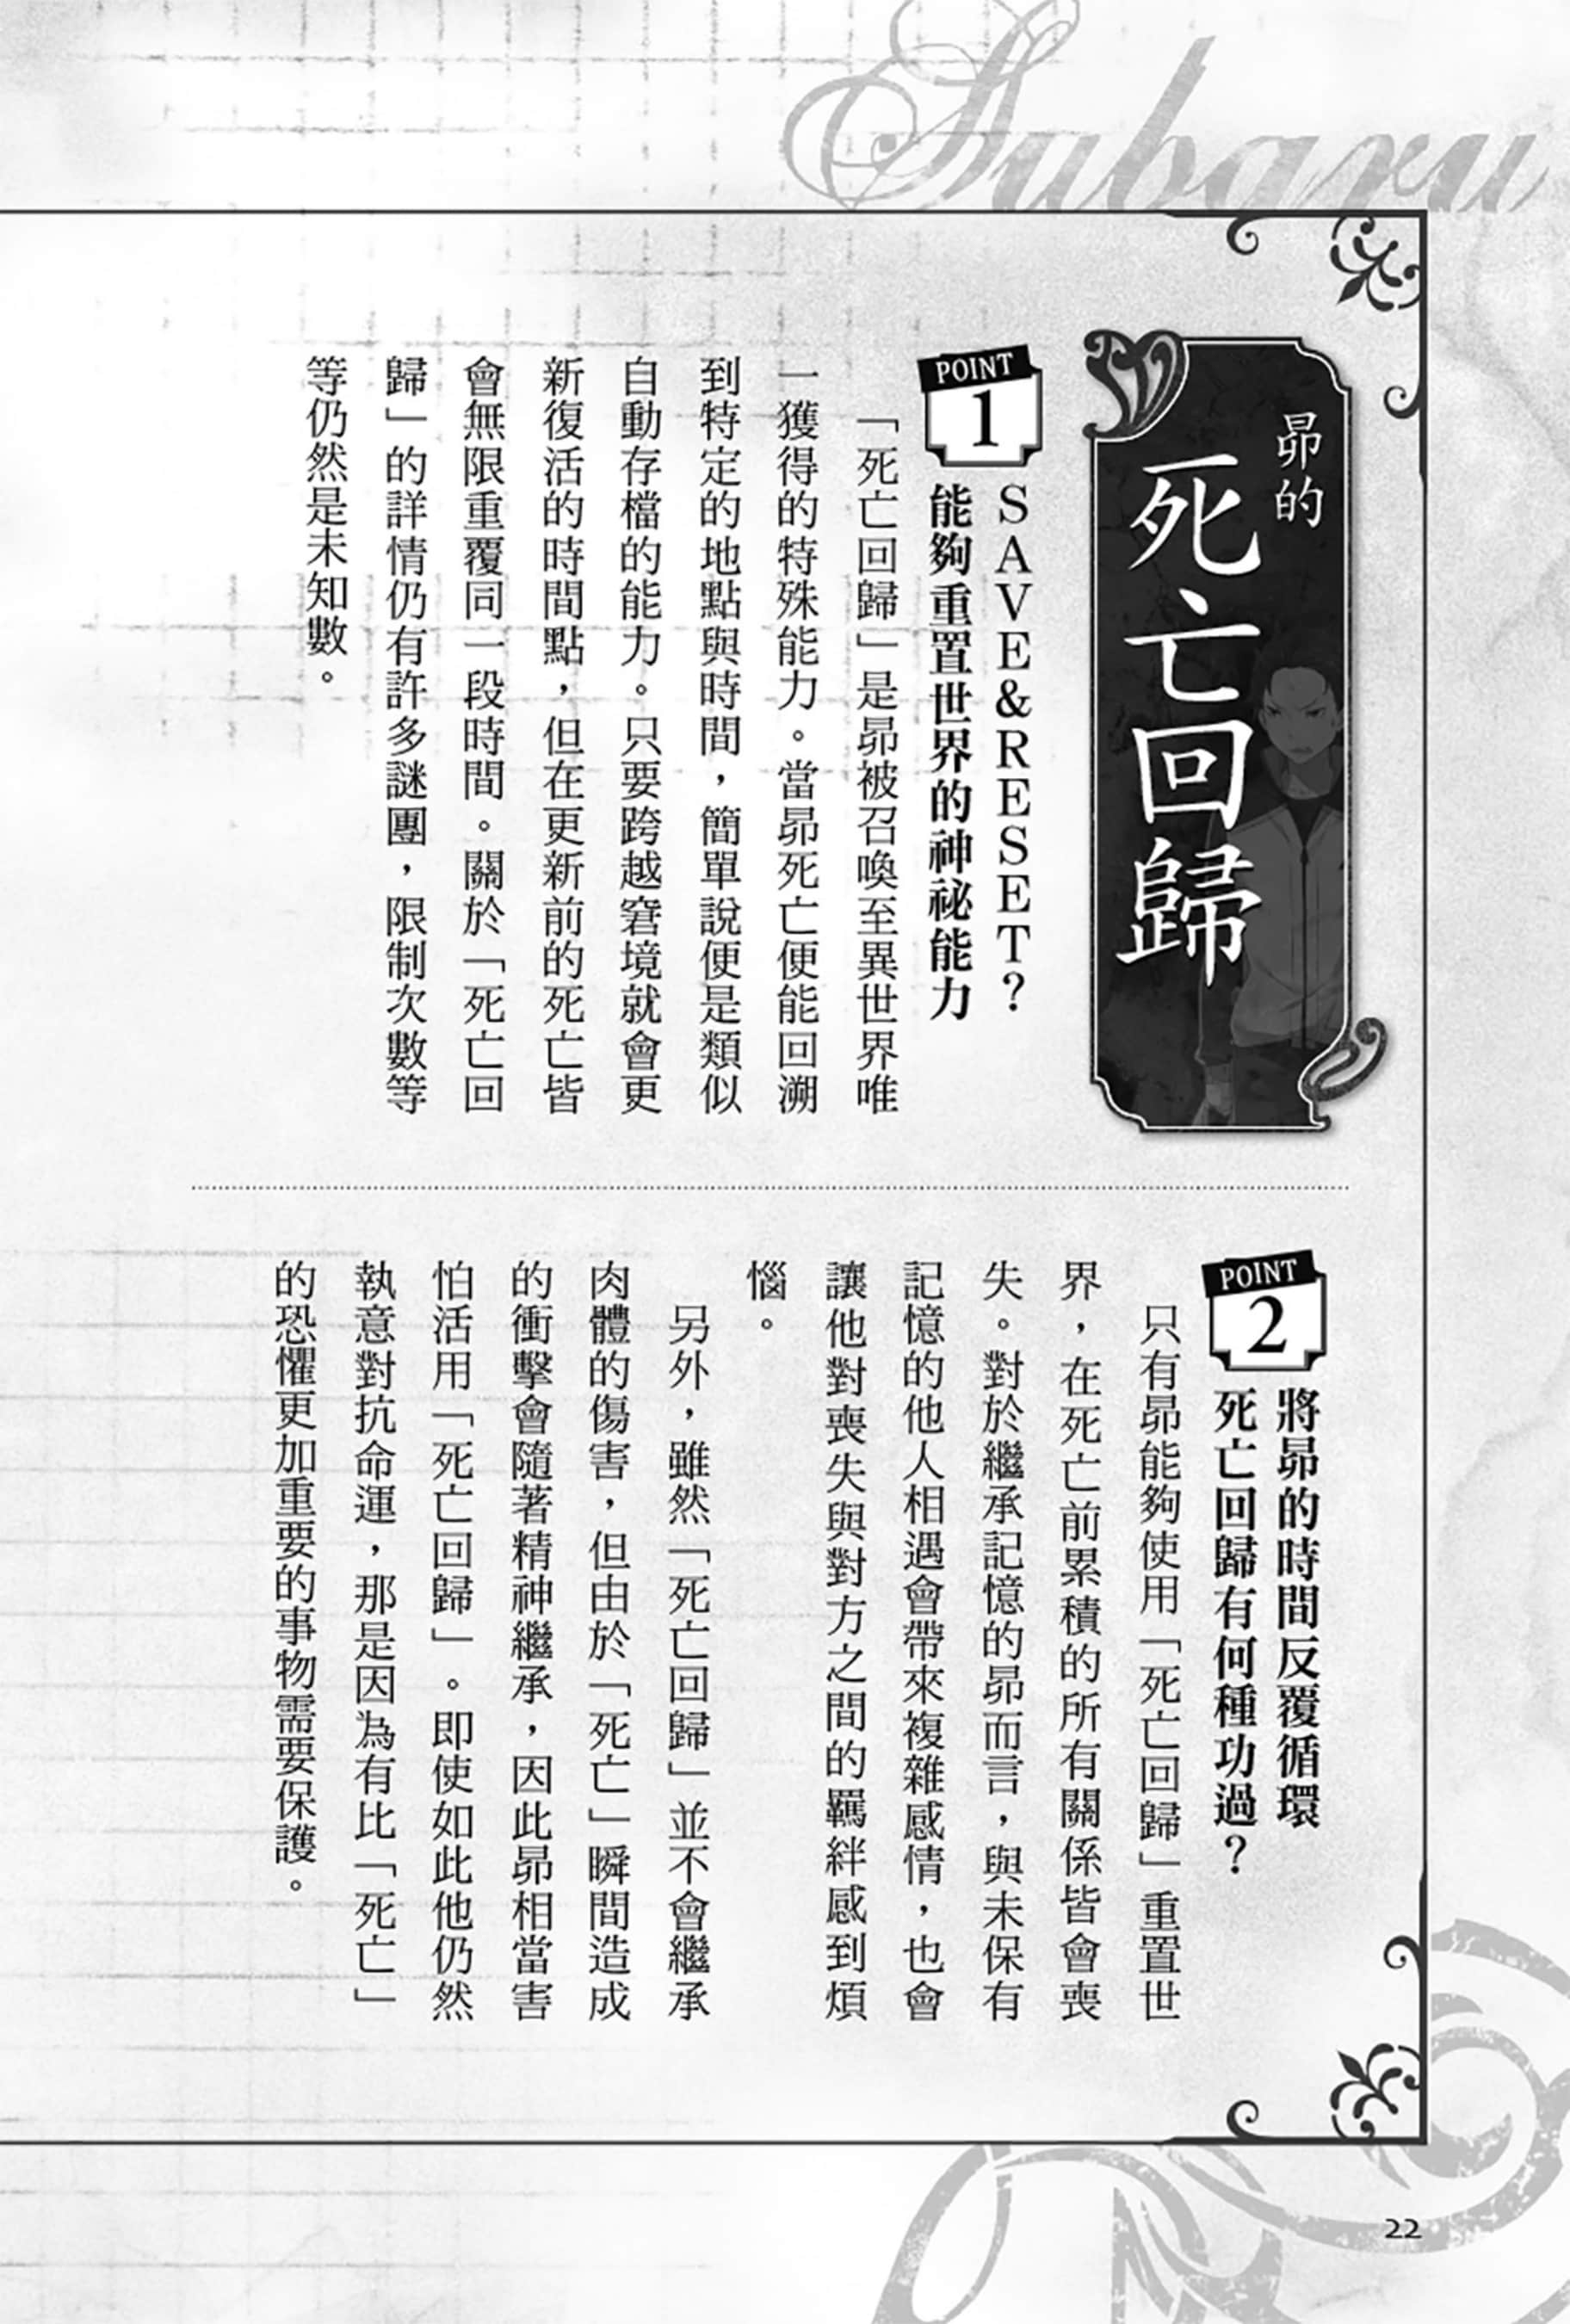 Subaru
昴的
死亡回歸
POINT
1
SAVE&RESET?
能夠重置世界的神祕能力
「死亡回歸」是昴被召喚至異世界唯
一獲得的特殊能力。當昴死亡便能回溯
到特定的地點與時間，簡單說便是類似
自動存檔的能力。只要跨越窘境就會更
新復活的時間點，但在更新前的死亡皆
會無限重覆同一段時間。關於「死亡回
歸」的詳情仍有許多謎團，限制次數等
等仍然是未知數。
POINT
2
將昴的時間反覆循環
死亡回歸有何種功過？
只有昴能夠使用「死亡回歸」重置世
界，在死亡前累積的所有關係皆會喪
失。對於繼承記憶的昴而言，與未保有
記憶的他人相遇會帶來複雜感情，也會
讓他對喪失與對方之間的羈絆感到煩
惱。
另外，雖然「死亡回歸」並不會繼承
肉體的傷害，但由於「死亡」瞬間造成
的衝擊會隨著精神繼承，因此昴相當害
怕活用「死亡回歸」。即使如此他仍然
執意對抗命運，那是因為有比「死亡」
的恐懼更加重要的事物需要保護。
22